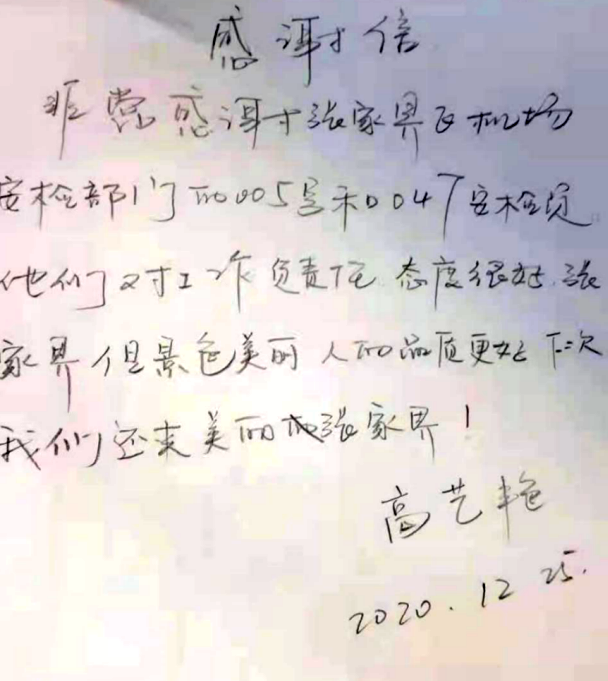 感谢信
非常感谢张家界飞机场
安检部门的005号和0047安检员
他们对工作负责任 态度很好 张
家界但景色美丽 人的品质更好 下次
我们还来美丽的张家界!
高艺艳
2020.12 25.